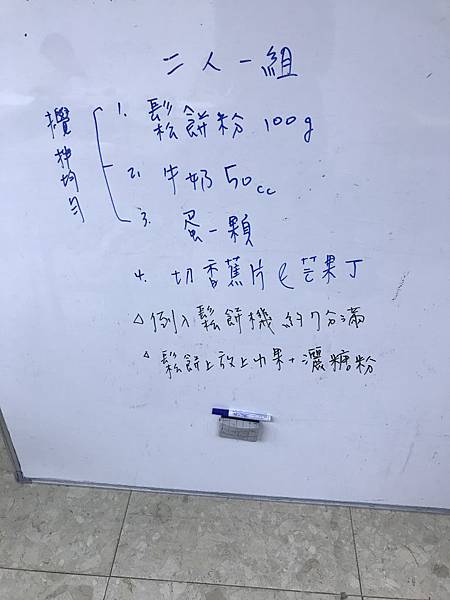 二人一組
攪拌均勻
1. 鬆餅粉 100g
2. 牛奶 50cc
3. 蛋一顆
4. 切香蕉片、芒果丁
△ 倒入鬆餅機 約7分滿
△ 鬆餅上放上水果+灑糖粉